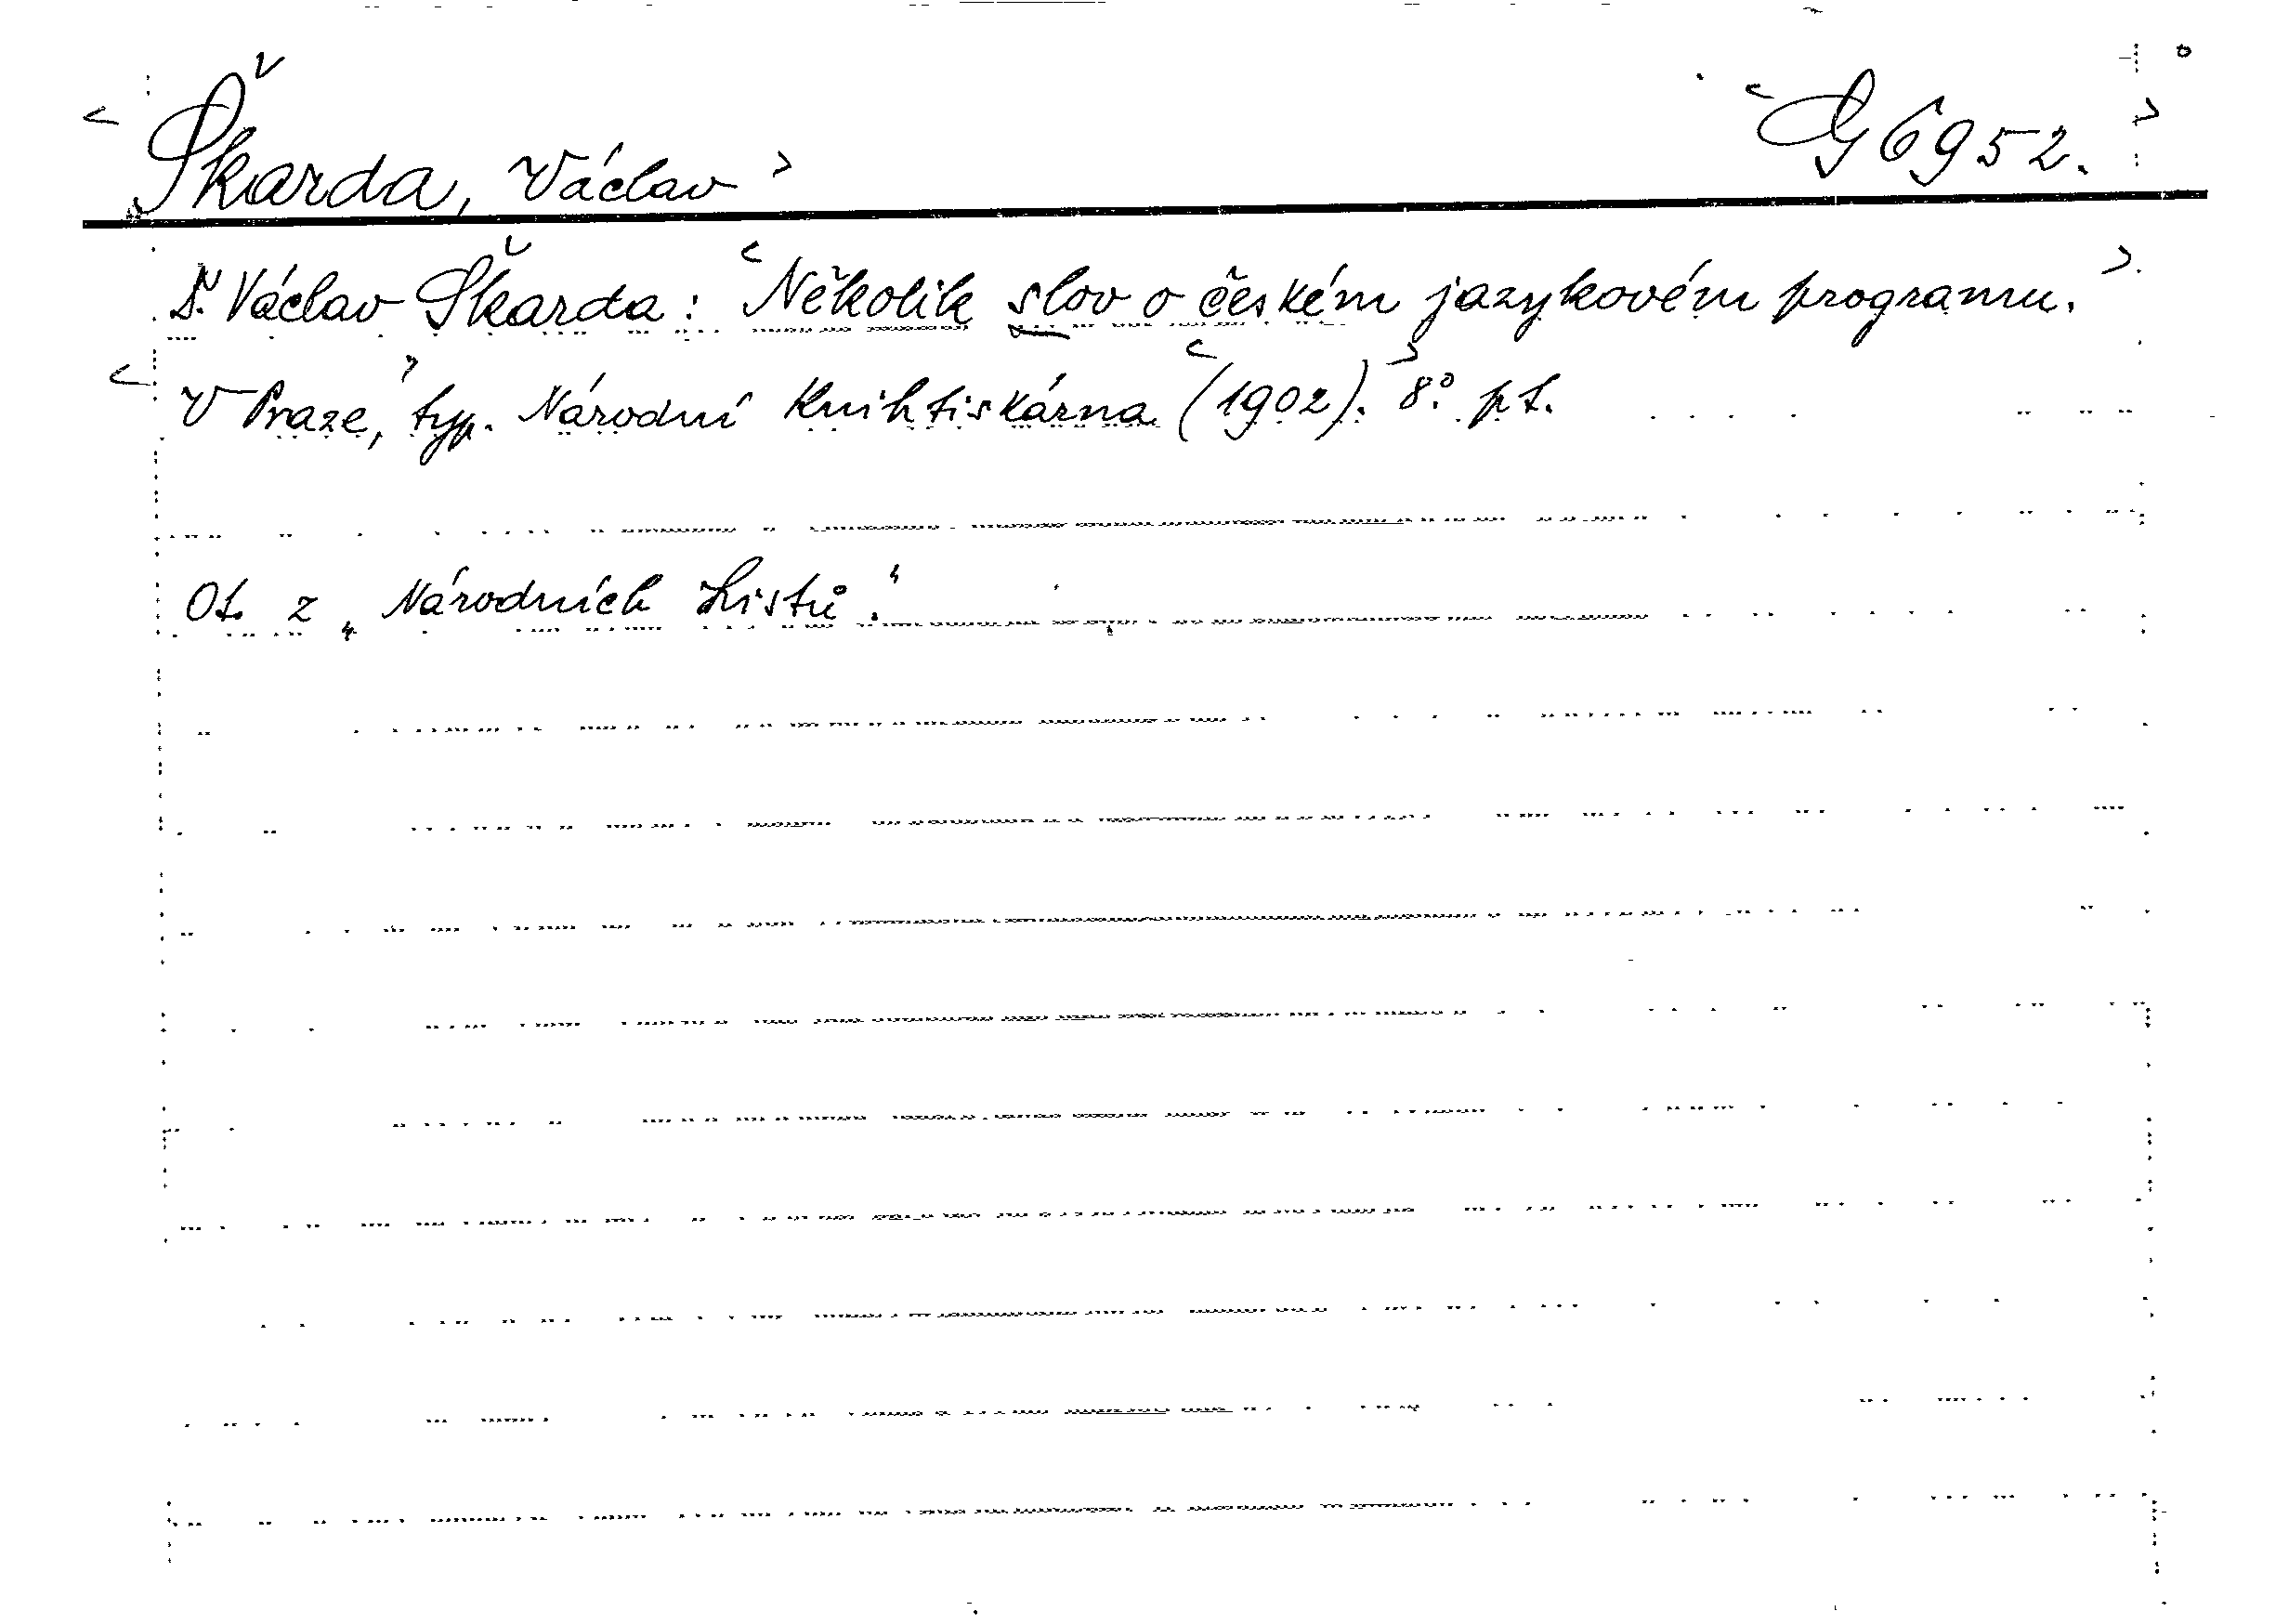 <Škarda, Václav> <G 6952.>
Dr. Václav Škarda: <Několik slov o českém jazykovém programu.>
<V Praze,> typ. Národní Knihtiskárna <(1902).> 8° př.
Ot. z „Národních Listů."